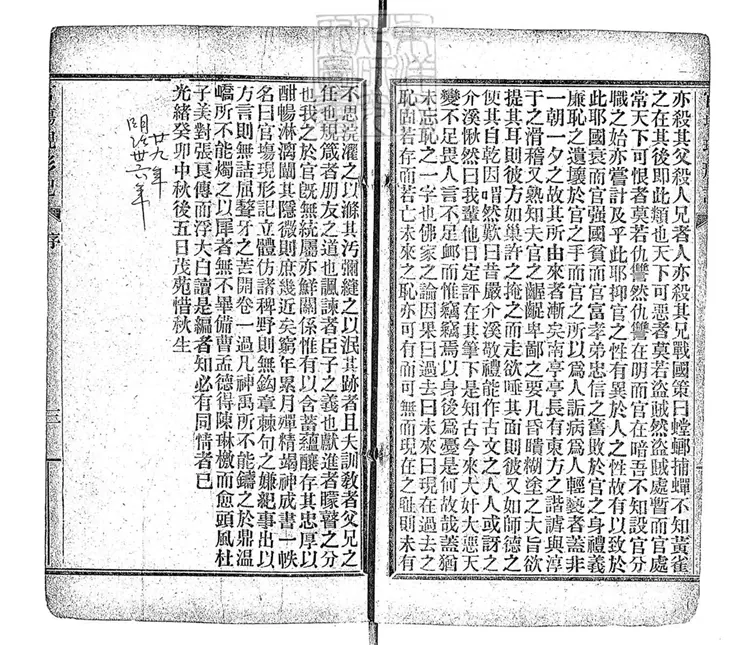 亦殺其父殺人兄者人亦殺其兄戰國策曰螳螂捕蟬不知黃雀
之在其後即此類也天下可惡者莫若盜賊然盜賊處暫而官處
常天下可恨者莫若仇讐然仇讐在明而官在暗吾不知設官分
職之始亦嘗計及乎此耶抑官之性有異於人之性故有以致於
此耶國衰而官强國貧而官富孝弟忠信之舊敗於官之身禮義
廉恥之遺壞於官之手而官之所以爲人詬病爲人輕褻者蓋非
一朝一夕之故其所由來者漸矣南亭亭長有東方之諧謔與淳
于之滑稽又熟知夫官之齷齪卑鄙之要凡昏聵糊塗之大旨欲
提其耳則彼方如巢許之掩之而走欲唾其面則彼又如師德之
使其自乾因喟然歎曰昔嚴介溪敬禮能作古文之人人或訝之
介溪愀然曰我輩他日定評在其筆下是知古今來大奸大惡天
變不足畏人言不足卹而惟竊竊焉以身後爲憂是何故哉蓋猶
未忘恥之一字也佛家之論因果曰過去曰未來曰現在過去之
恥固若存而若亡未來之恥亦可有而可無而現在之恥則未有
不思浣濯之以滌其汚彌縫之以泯其跡者且夫訓教者父兄之
任也規箴者朋友之道也諷諫者臣子之義也獻進者矇瞽之分
也我之於官旣無統屬亦鮮關係惟有以含蓄蘊釀存其忠厚以
酣暢淋漓闡其隱微則庶幾近矣窮年累月殫精竭神成書一帙
名曰官塲現形記立體仿諸稗野則無鈎章棘句之嫌紀事出以
方言則無詰屈聱牙之苦開卷一過凡神禹所不能鑄之於鼎温
嶠所不能燭之以犀者無不畢備曹孟德得陳琳檄而愈頭風杜
子美對張良傳而浮大白讀是編者知必有同情者已
光緒癸卯中秋後五日茂苑惜秋生
廿九年
明治卅六年
序
三